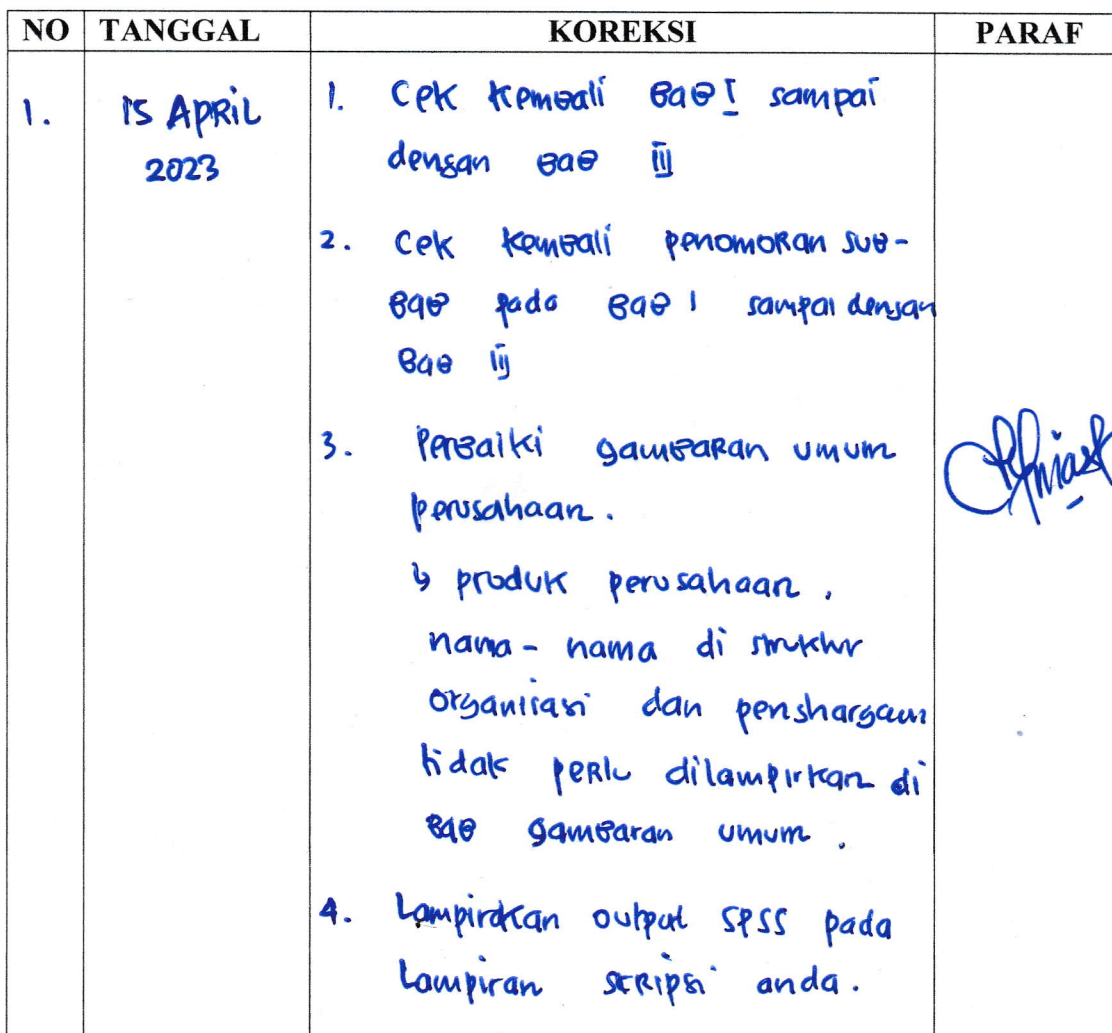 NO TANGGAL KOREKSI PARAF
1. 15 APRIL 1. Cek Kembali BAB I sampai
2023 dengan BAB III
2. Cek Kembali penomoran sub-
BAB pada BAB I sampai dengan
BAB III
3. Perbaiki gambaran umum
perusahaan.
↳ produk perusahaan,
nama-nama di struktur
organisasi dan penghargaan
tidak perlu dilampirkan di
BAB gambaran umum.
4. Lampirkan output SPSS pada
Lampiran skripsi anda.